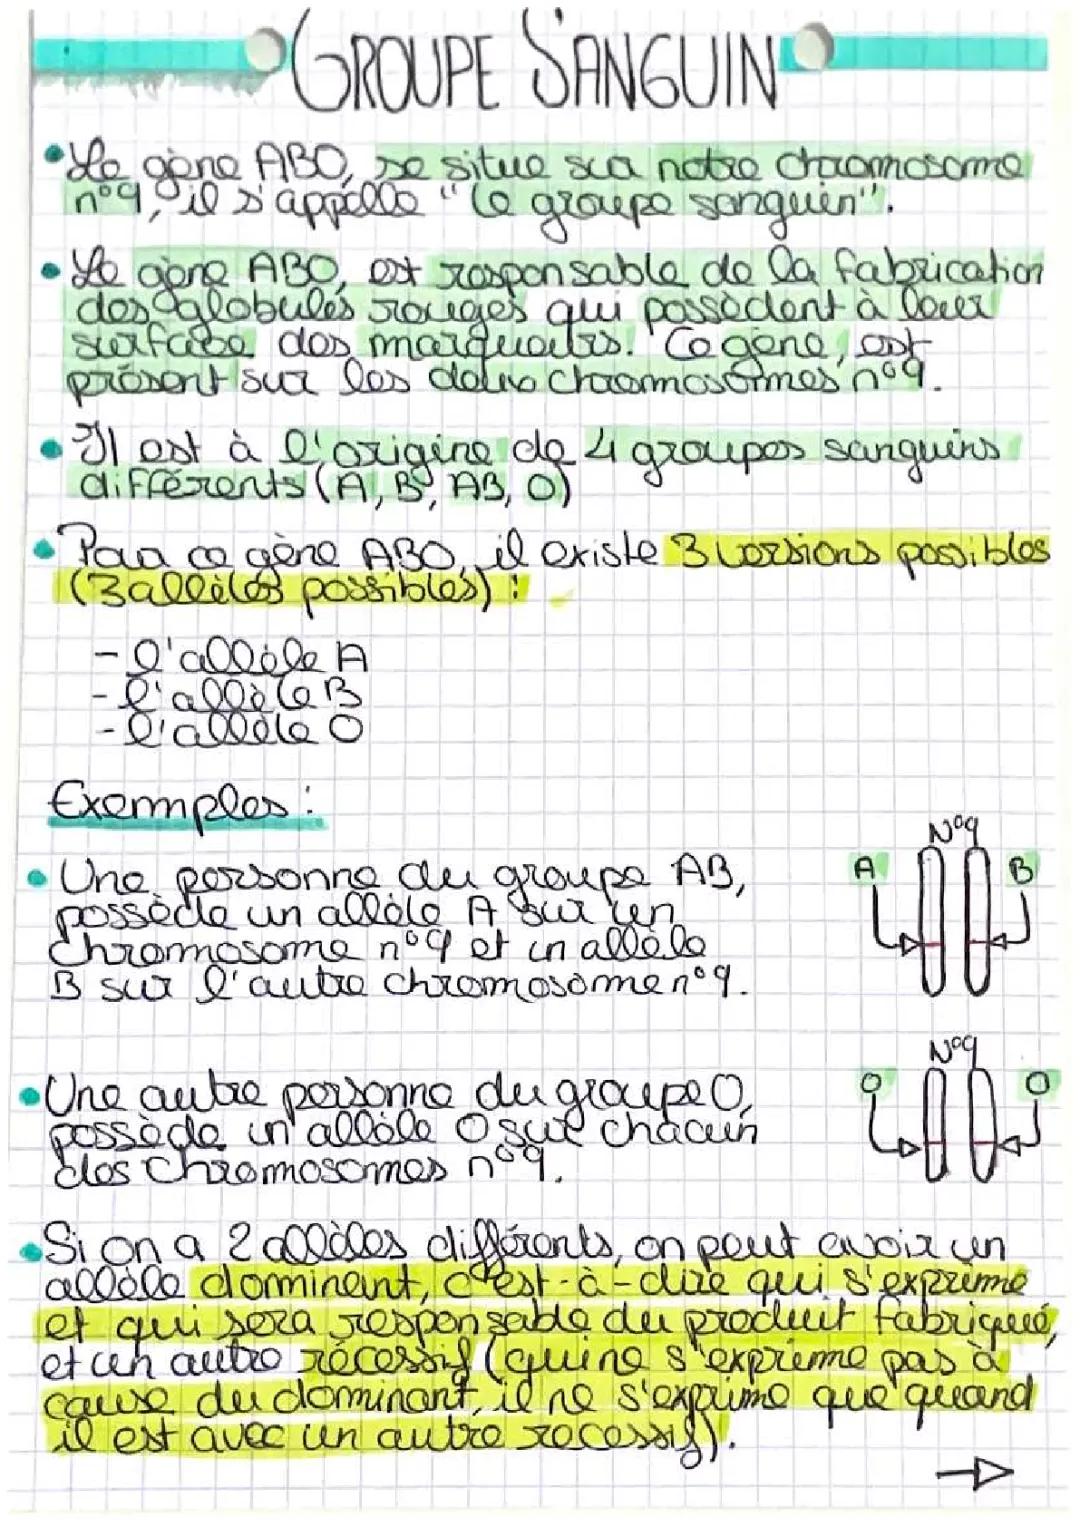 GROUPE SANGUIN
• Le gène ABO, se situe sur notre chromosome
n°9, il s'appelle "le groupe sanguin".
• Le gène ABO, est responsable de la fabrication
des globules rouges qui possèdent à leur
surface des marqueurs. Ce gène, est
présent sur les deux chromosomes n°9.
• Il est à l'origine de 4 groupes sanguins
différents (A, B, AB, O)
• Pour ce gène ABO, il existe 3 versions possibles
(3 allèles possibles) :
- l'allèle A
- l'allèle B
- l'allèle O
Exemples :
• Une personne du groupe AB,
possède un allèle A sur un
chromosome n°9 et un allèle
B sur l'autre chromosome n°9.
N°9
A B
• Une autre personne du groupe O,
possède un allèle O sur chacun
des chromosomes n°9.
N°9
O O
• Si on a 2 allèles différents, on peut avoir un
allèle dominant, c'est-à-dire qui s'exprime
et qui sera responsable du produit fabriqué,
et un autre récessif (qui ne s'exprime pas à
cause du dominant, il ne s'exprime que quand
il est avec un autre récessif).